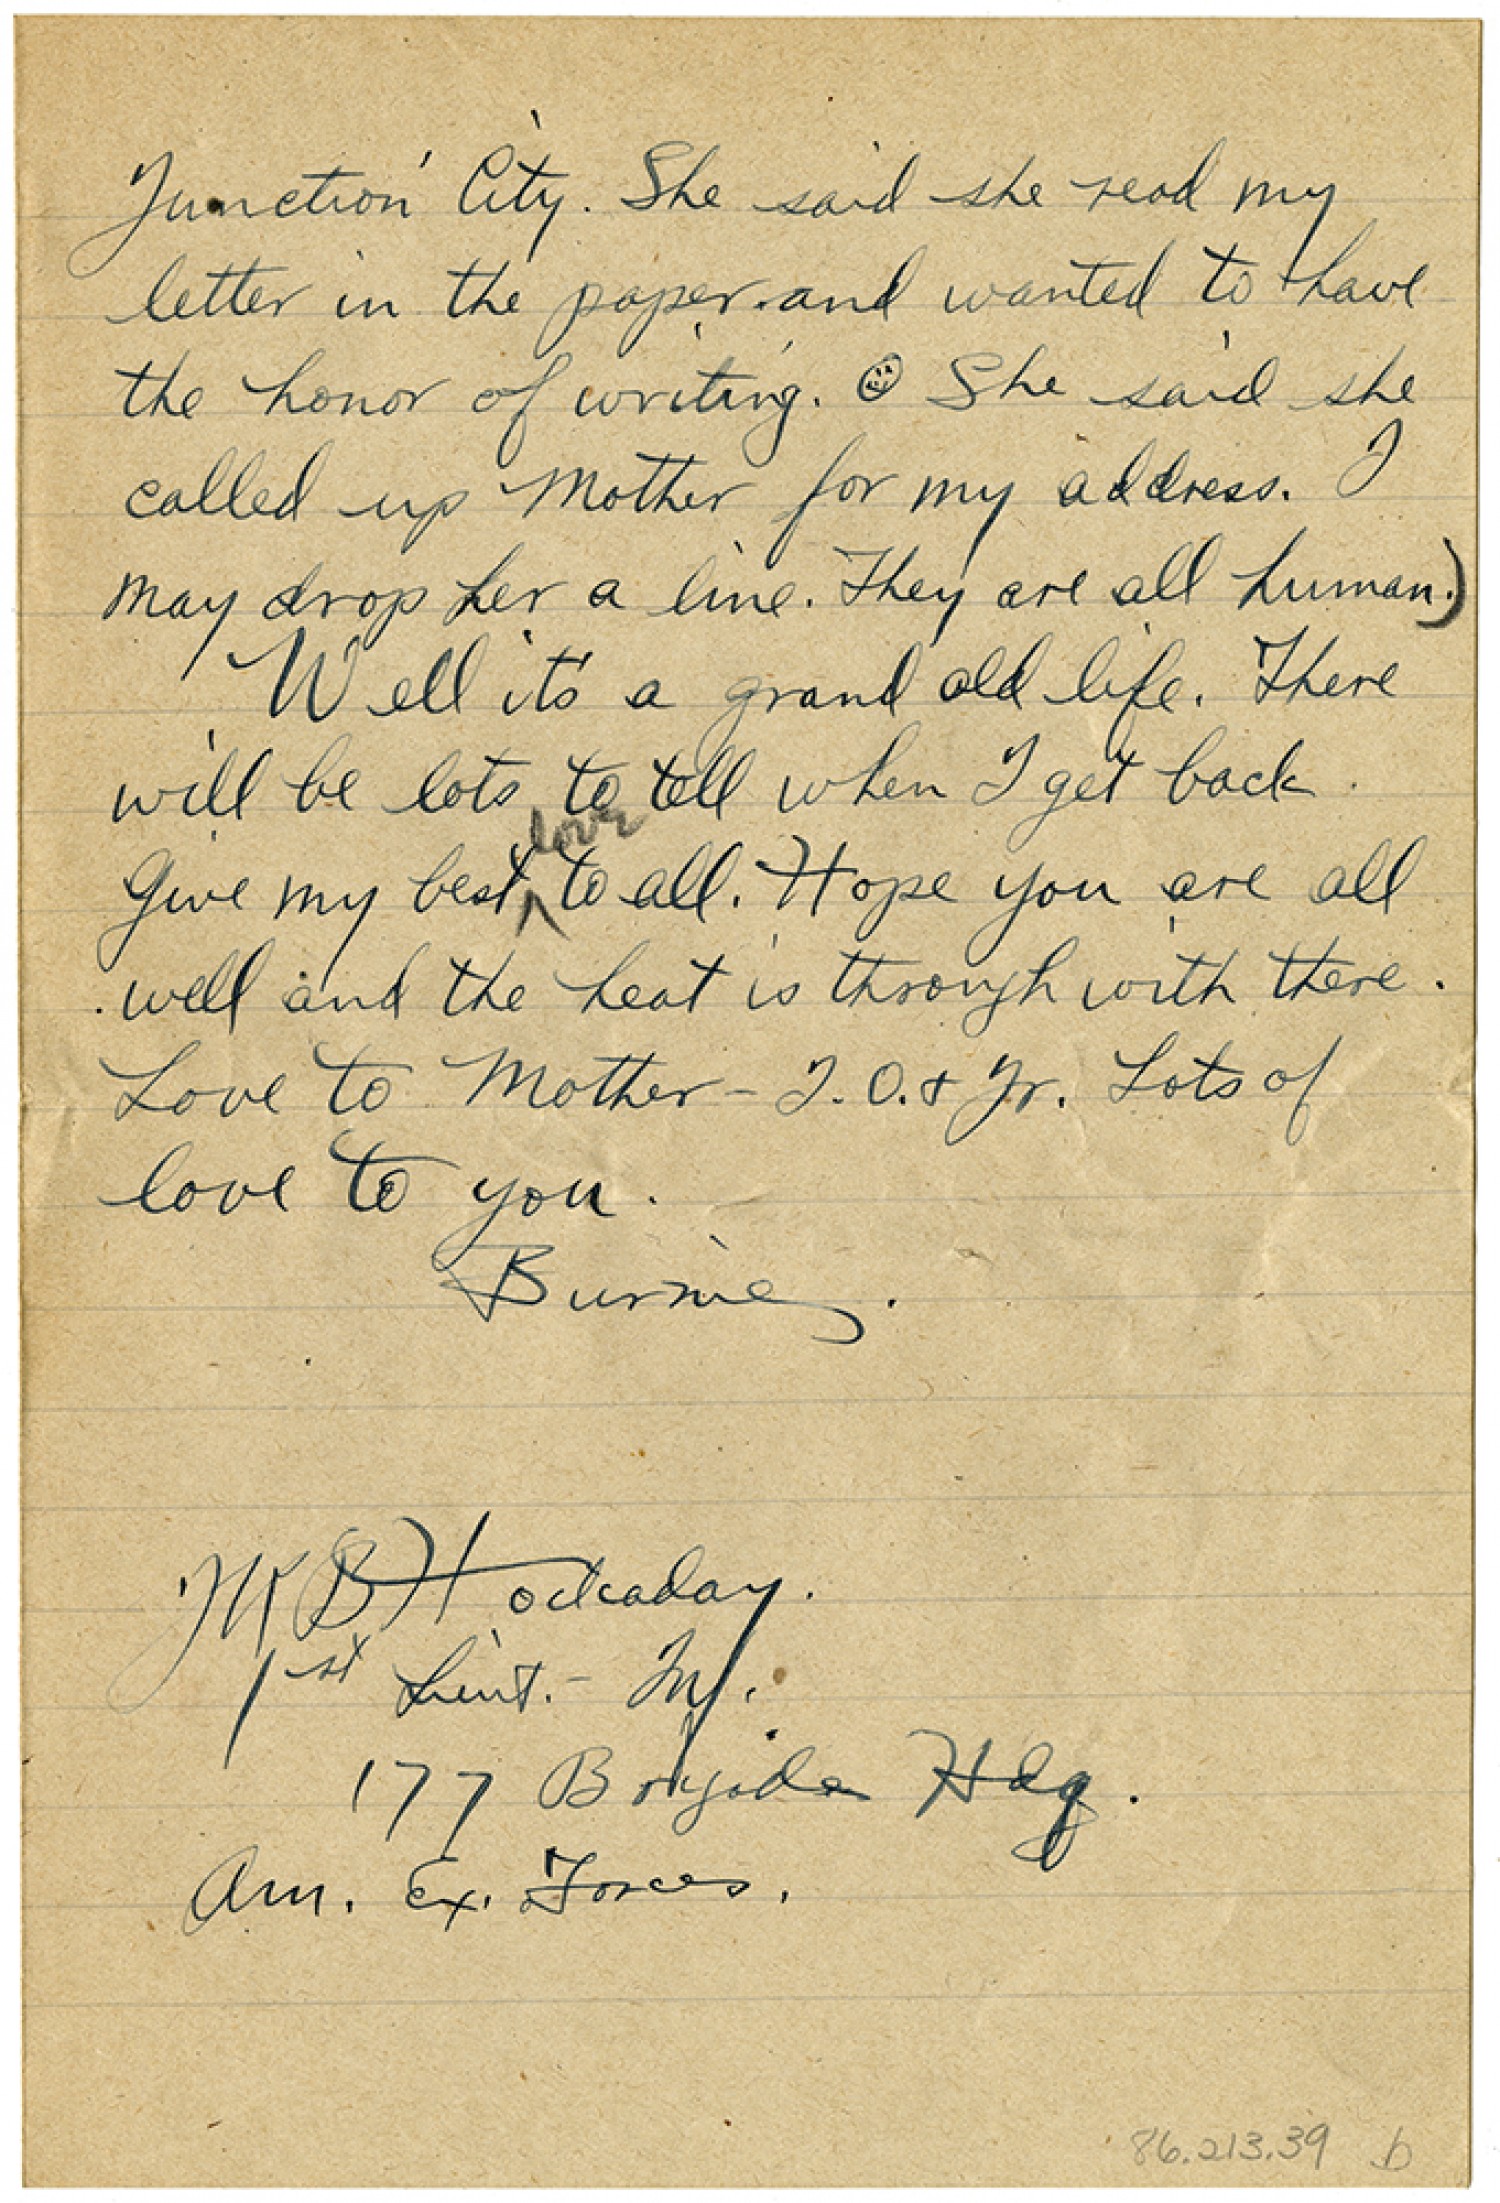 Junction City. She said she read my
letter in the paper and wanted to have
the honor of writing. ☺ She said she
called up Mother for my address. I
may drop her a line. They are all human.)
Well it's a grand old life. There
will be lots to tell when I get back.
Give my best love to all. Hope you are all
well and the heat is through with there.
Love to Mother - I. O. & Jr. Lots of
love to you.
Burnie.
I K B Hockaday.
1st Lieut. - Inf.
177 Brigade Hdq.
Am. Ex. Forces.
86.213.39 b